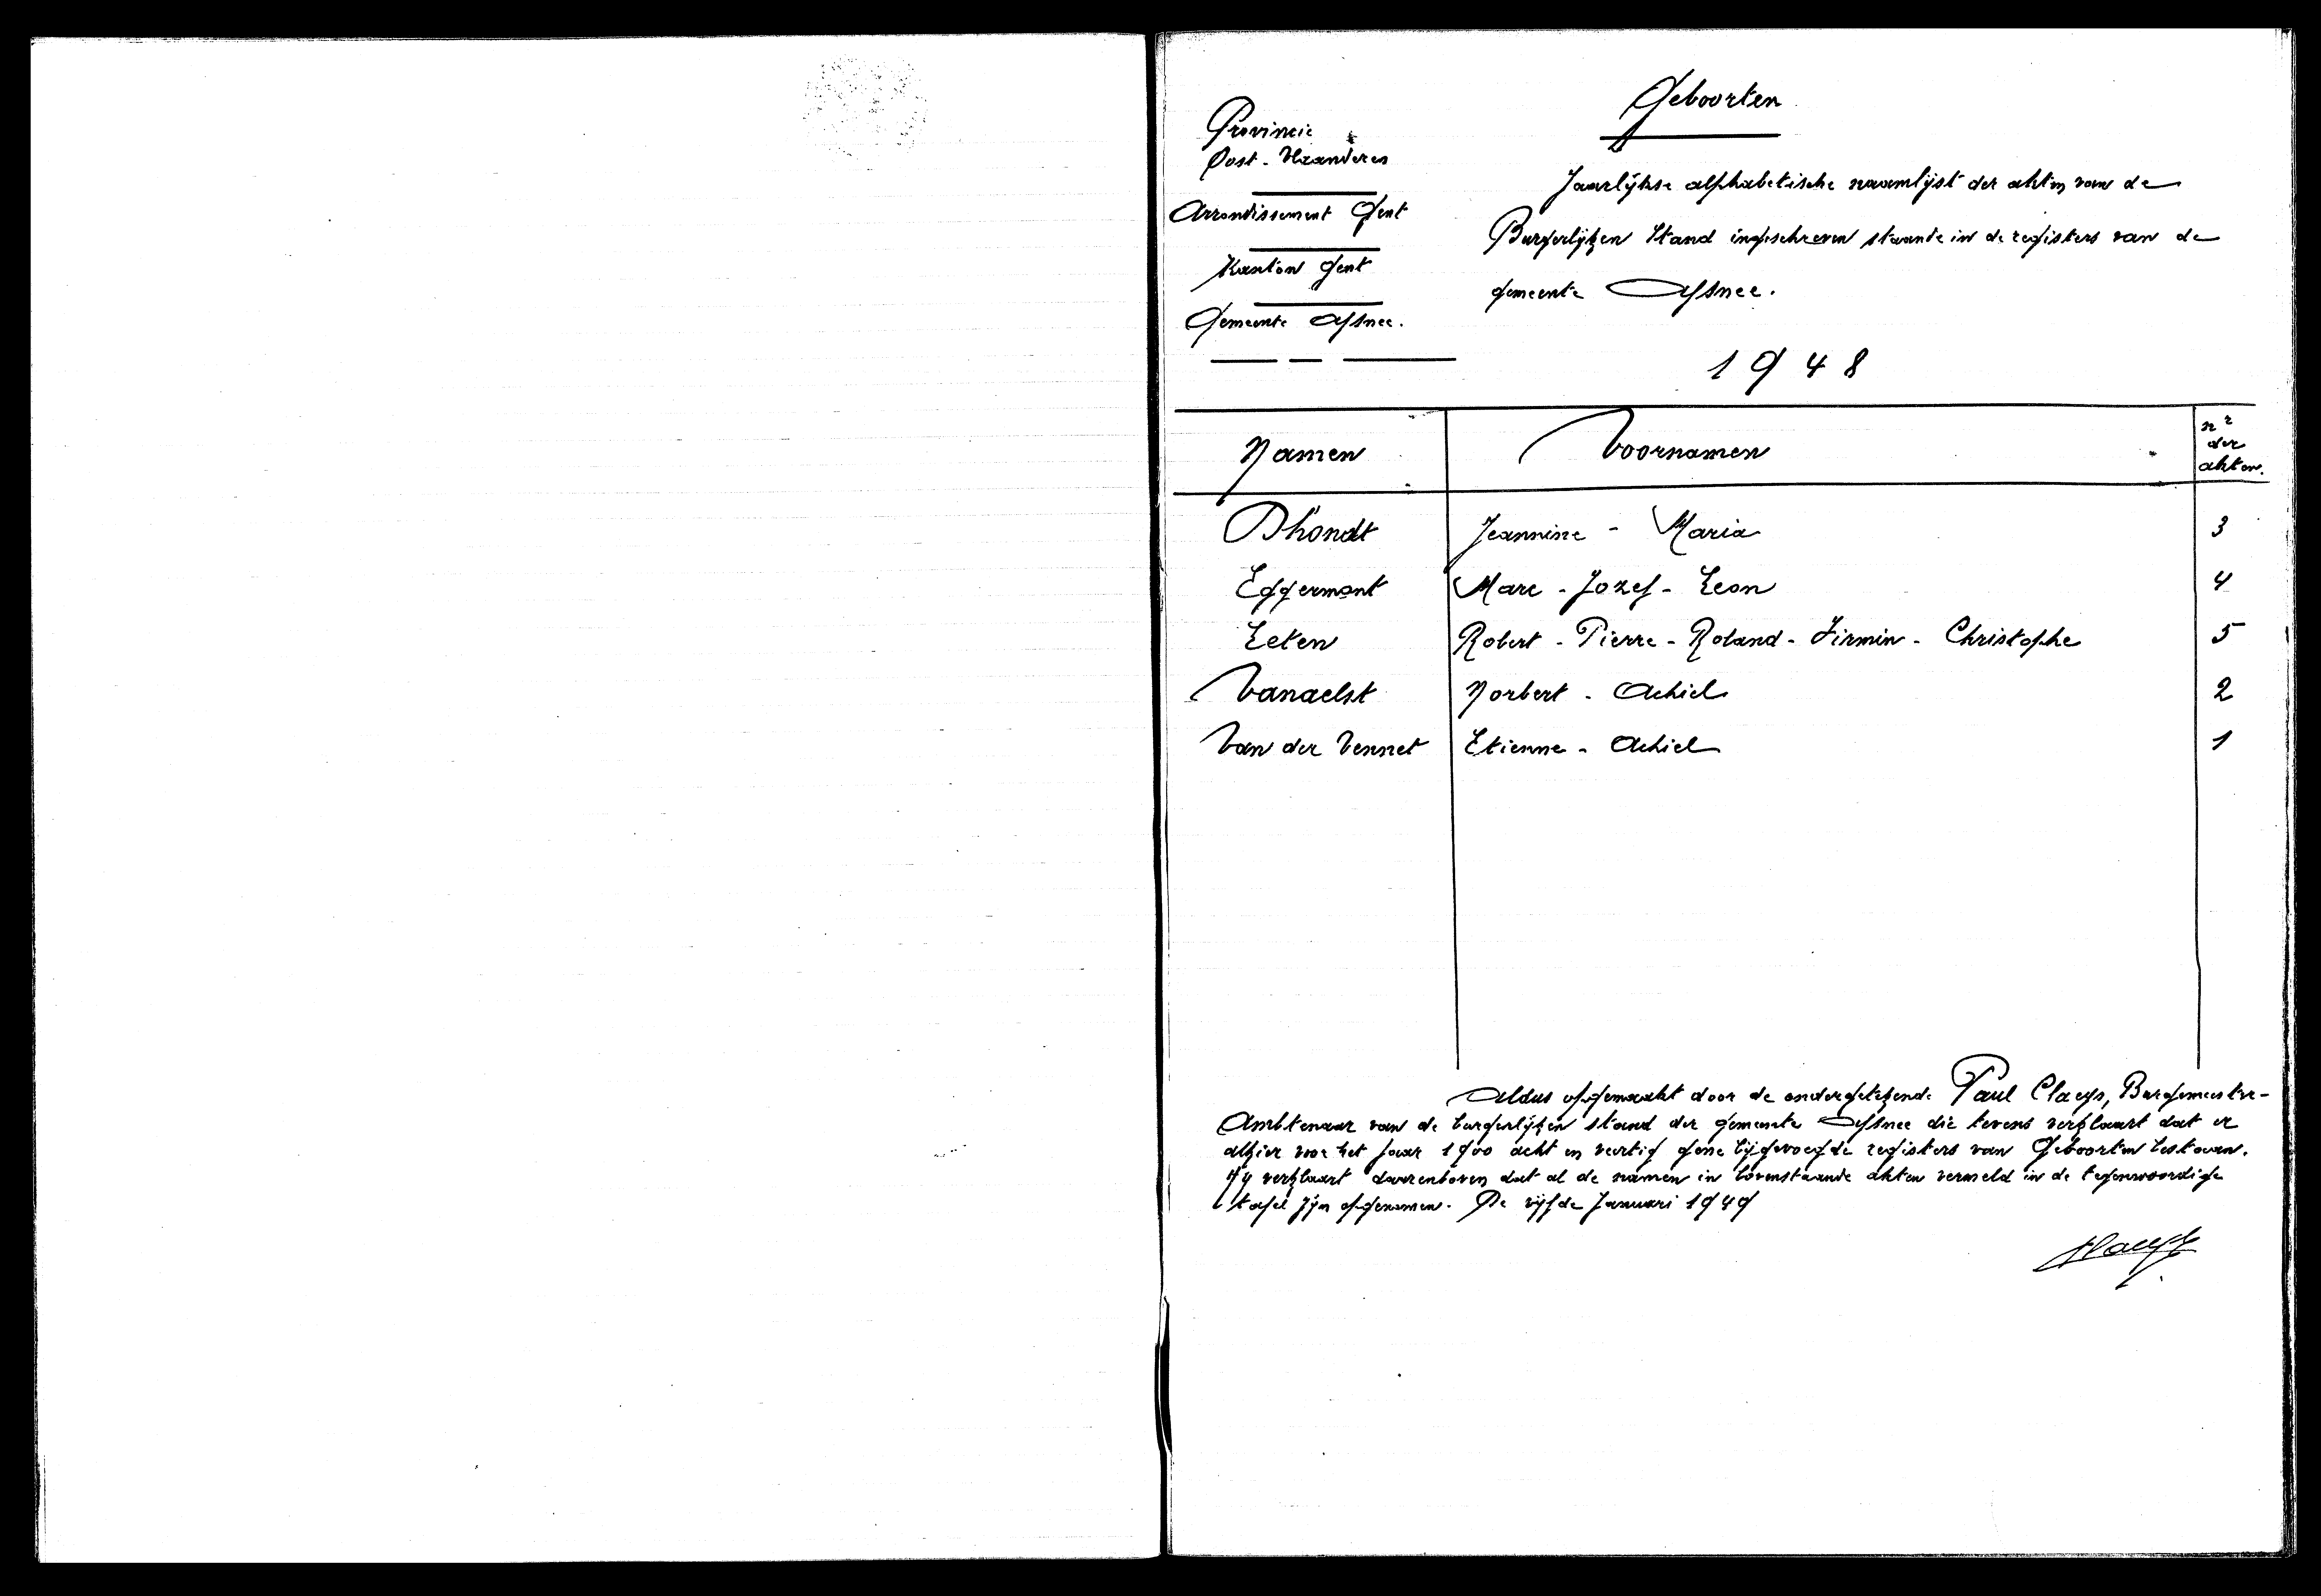 Geboorten
Provincie
Oost-Vlaanderen
Arrondissement Gent
Kanton Gent
Gemeente Afsnee.
Jaarlijkse alphabetische naamlijst der akten van de
Burgerlijken Stand ingeschreven staande in de registers van de
gemeente Afsnee.
1948
Namen Voornamen nr der akten.
D'hondt Jeannine - Maria 3
Eggermont Marc - Jozef - Leon 4
Leten Robert - Pierre - Roland - Firmin - Christophe 5
Vanaelst Norbert - Achiel 2
Van der Vennet Etienne - Achiel 1
Aldus opgemaakt door de ondergetekende Paul Claeys, Burgemeester-
Ambtenaar van de burgerlijken stand der gemeente Afsnee die tevens verklaart dat er
alhier voor het jaar 1900 acht en veertig gene bijgevoegde registers van Geboorten bestaan.
Hij verklaart daarenboven dat al de namen in bovenstaande akten vermeld in de tegenwoordige
tafel zijn opgenomen. De vijfde Januari 1949